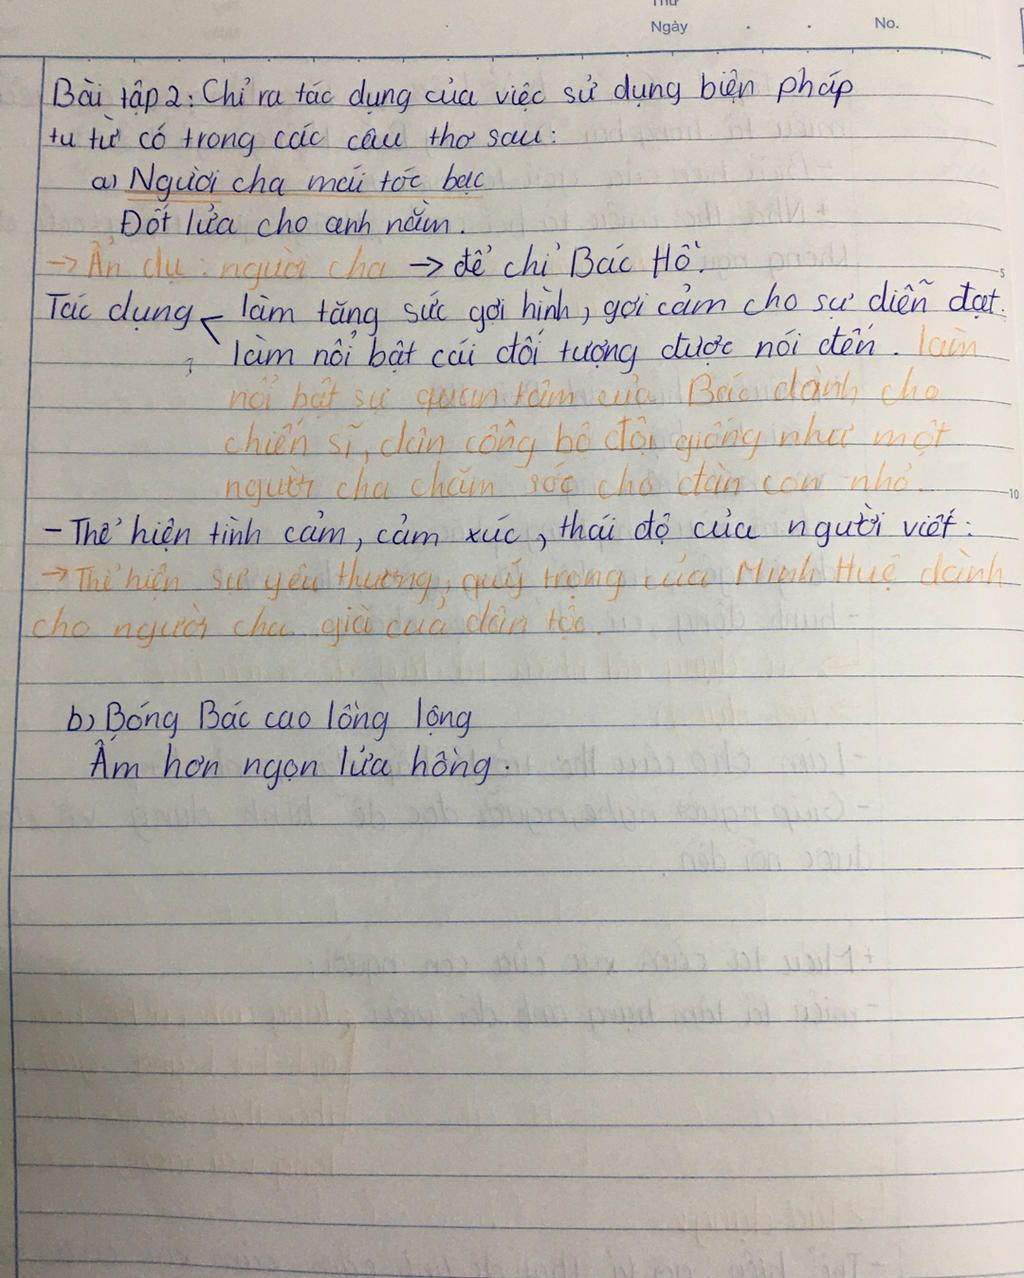 Thứ
Ngày . . No.
Bài tập 2: Chỉ ra tác dụng của việc sử dụng biện pháp
tu từ có trong các câu thơ sau:
a) Người cha mái tóc bạc
Đốt lửa cho anh nằm.
→ Ẩn dụ : người cha → để chỉ Bác Hồ.
Tác dụng làm tăng sức gợi hình, gợi cảm cho sự diễn đạt.
làm nổi bật cái đối tượng được nói đến. làm
nổi bật sự quan tâm của Bác dành cho
chiến sĩ, dân công bộ đội giống như một
người cha chăm sóc cho đàn con nhỏ.
- Thể hiện tình cảm, cảm xúc, thái độ của người viết:
→ Thể hiện sự yêu thương, quý trọng của Minh Huệ dành
cho người cha già của dân tộc.
b) Bóng Bác cao lồng lộng
Ấm hơn ngọn lửa hồng.
5
10